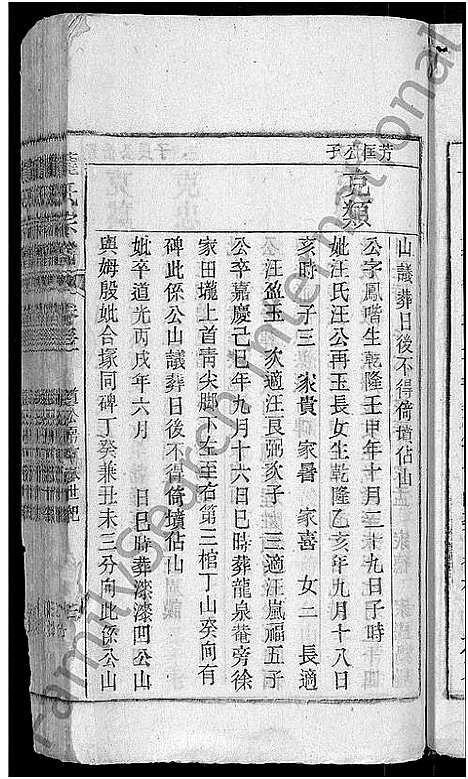 山議葬日後不得倚墳佔山
芳匡公子
克類
公字鳳喈生乾隆壬申年十月二十九日子時
妣汪氏汪公再玉長女生乾隆乙亥年九月十八日
亥時 子三 家貴 家暑 家喜 女二 長適
汪盈玉 次適汪艮弼次子 三適汪嵐福五子
公卒嘉慶己巳年九月十六日巳時葬龍泉菴旁徐
家田壠上首靑尖脚下左至右第三棺丁山癸向有
碑此係公山議葬日後不得倚墳佔山
妣卒道光丙戌年六月 日巳時葬漆凹公山
與姆殷妣合塚同碑丁癸兼丑未三分向此係公山
氏宗譜
FamilySearch International